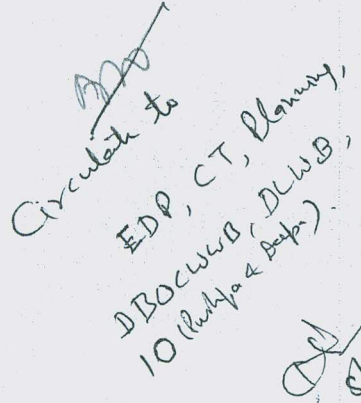 Circulate to
EDP, CT, Planning,
DBOCWWB, DLWB,
IO (Pushpa & Deepa).